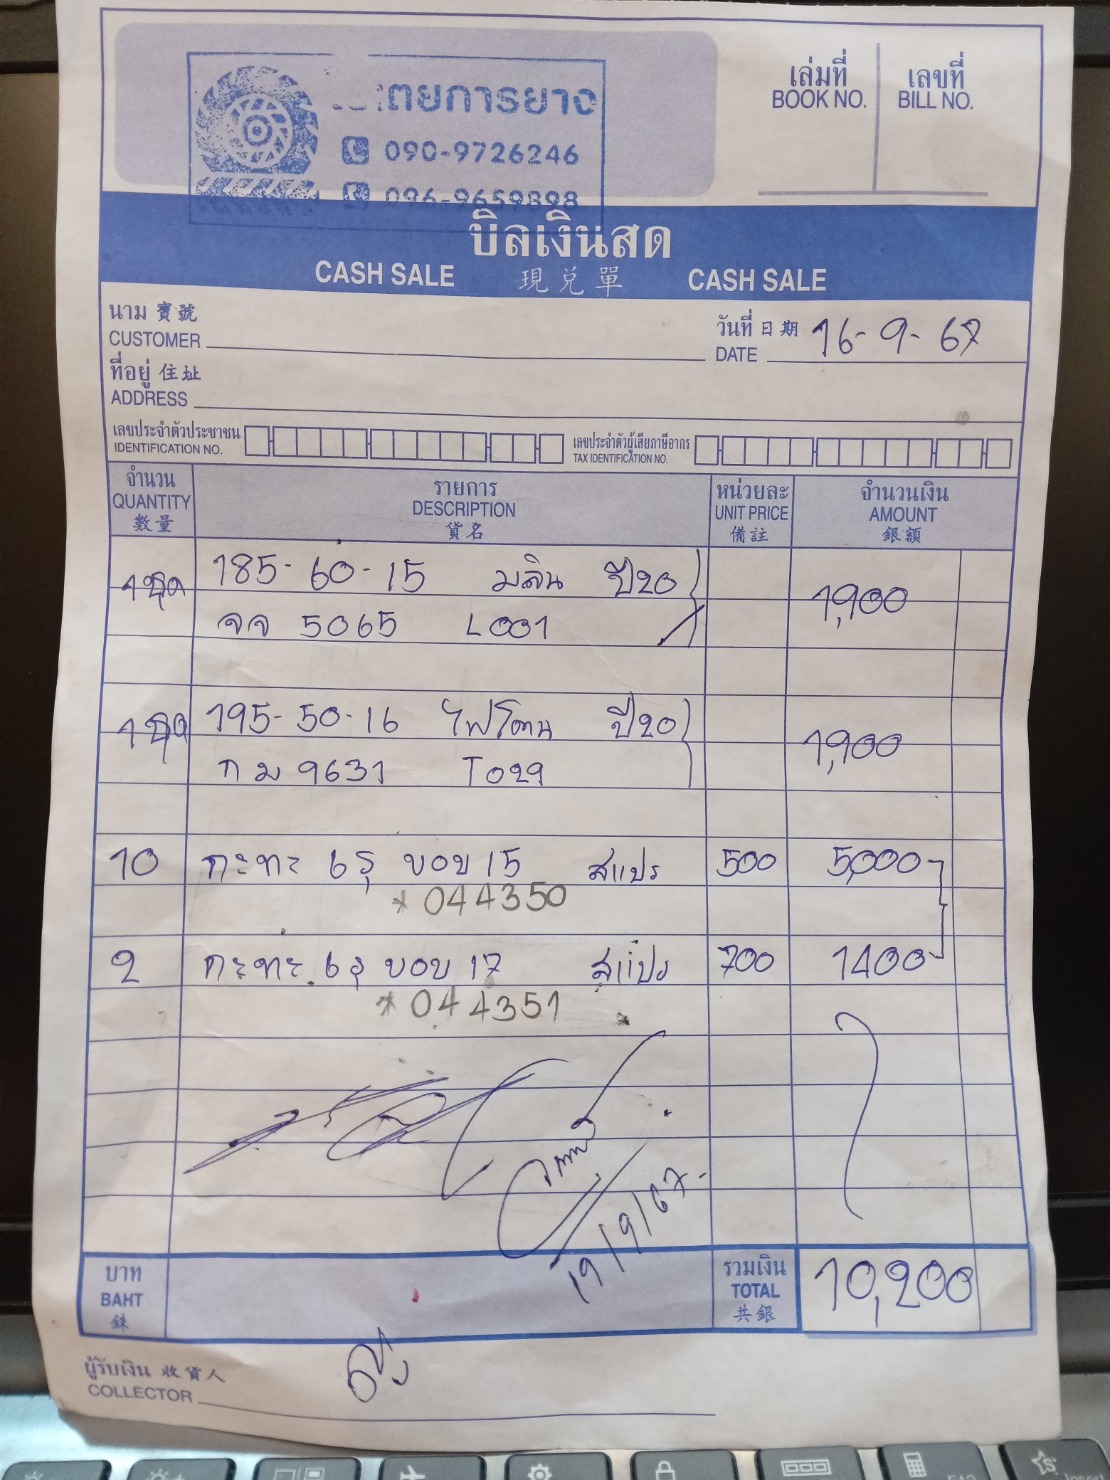 เตยการยาง
090-9726246
096-9659898
เล่มที่
BOOK NO.
เลขที่
BILL NO.
บิลเงินสด
CASH SALE 現兌單 CASH SALE
นาม 寶號
CUSTOMER
วันที่ 日期 16-9-67
DATE
ที่อยู่ 住址
ADDRESS
เลขประจำตัวประชาชน
IDENTIFICATION NO.
เลขประจำตัวผู้เสียภาษีอากร
TAX IDENTIFICATION NO.
จำนวน
QUANTITY
數量
รายการ
DESCRIPTION
貨名
หน่วยละ
UNIT PRICE
備註
จำนวนเงิน
AMOUNT
銀額
1 ชุด 185-60-15 มลิน ปี20 1,900
จจ 5065 L001
1 ชุด 195-50-16 ไฟโตน ปี20 1,900
กม 9631 T029
10 กะทะ 6รู ขอบ 15 สแปร 500 5,000
*044350
2 กะทะ 6รู ขอบ 17 สแปร 700 1400
*044351
19/9/67
บาท
BAHT
銖
รวมเงิน
TOTAL
共銀
10,200
ผู้รับเงิน 收貨人
COLLECTOR